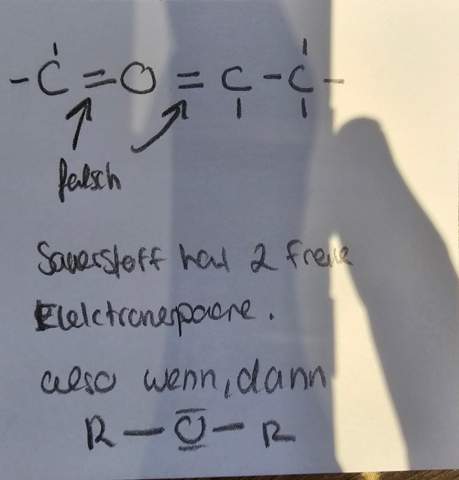 - C = O = C - C -
falsch
Sauerstoff hat 2 freie
Elektronenpaare.
also wenn, dann
R — O — R